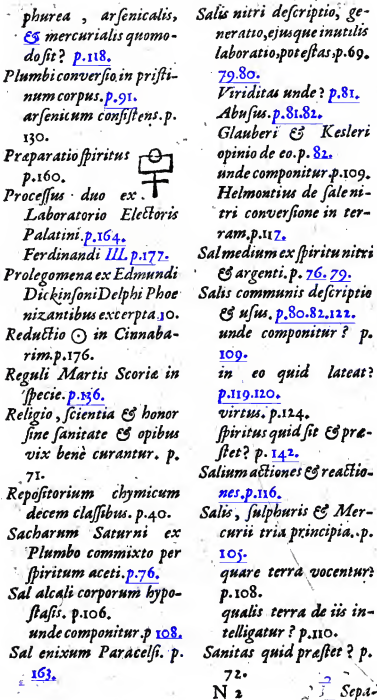 phurea, arſenicalis,
& mercurialis quomo-
do ſit? p.118.
Plumbi converſio, in priſti-
num corpus. p.91.
arſenicum conſiſtens. p.
130.
Præparatio ſpiritus
p.160.
Proceſſus duo ex
Laboratorio Electoris
Palatini. p.164.
Ferdinandi III. p.177.
Prolegomena ex Edmundi
Dickinſoni Delphi Phoe
nizantibus excerpta.10.
Reductio ☉ in Cinnaba-
rim. p.176.
Reguli Martis Scoriæ in
ſpecie. p.136.
Religio, ſcientia & honor
ſine ſanitate & opibus
vix benè curantur. p.
71.
Repoſitorium chymicum
decem claſſibus. p.40.
Sacharum Saturni ex
Plumbo commixto per
ſpiritum aceti. p.76.
Sal alcali corporum hypo-
ſtaſis. p.106.
unde componitur. p 108.
Sal enixum Paracelſi. p.
163.
Salis nitri deſcriptio, ge-
neratio, ejusque inutilis
laboratio, poteſtas, p.69.
79.80.
Viriditas unde? p.81.
Abuſus. p.81.82.
Glauberi & Kesleri
opinio de eo. p. 82.
unde componitur. p.109.
Helmontius de ſale ni-
tri converſione in ter-
ram. p.117.
Sal medium ex ſpiritu nitri
& argenti. p. 76. 79.
Salis communis deſcriptio
& uſus. p.80.82.122.
unde componitur? p.
109.
in eo quid lateat?
p.119.120.
virtus. p.124.
ſpiritus quid ſit & præ-
ſtet? p. 142.
Salium actiones & reactio-
nes. p.116.
Salis, ſulphuris & Mer-
curii tria principia. p.
105.
quare terra vocentur?
p.108.
qualis terra de iis in-
telligatur? p.110.
Sanitas quid præſtet? p.
72.
N 2 Sepa-